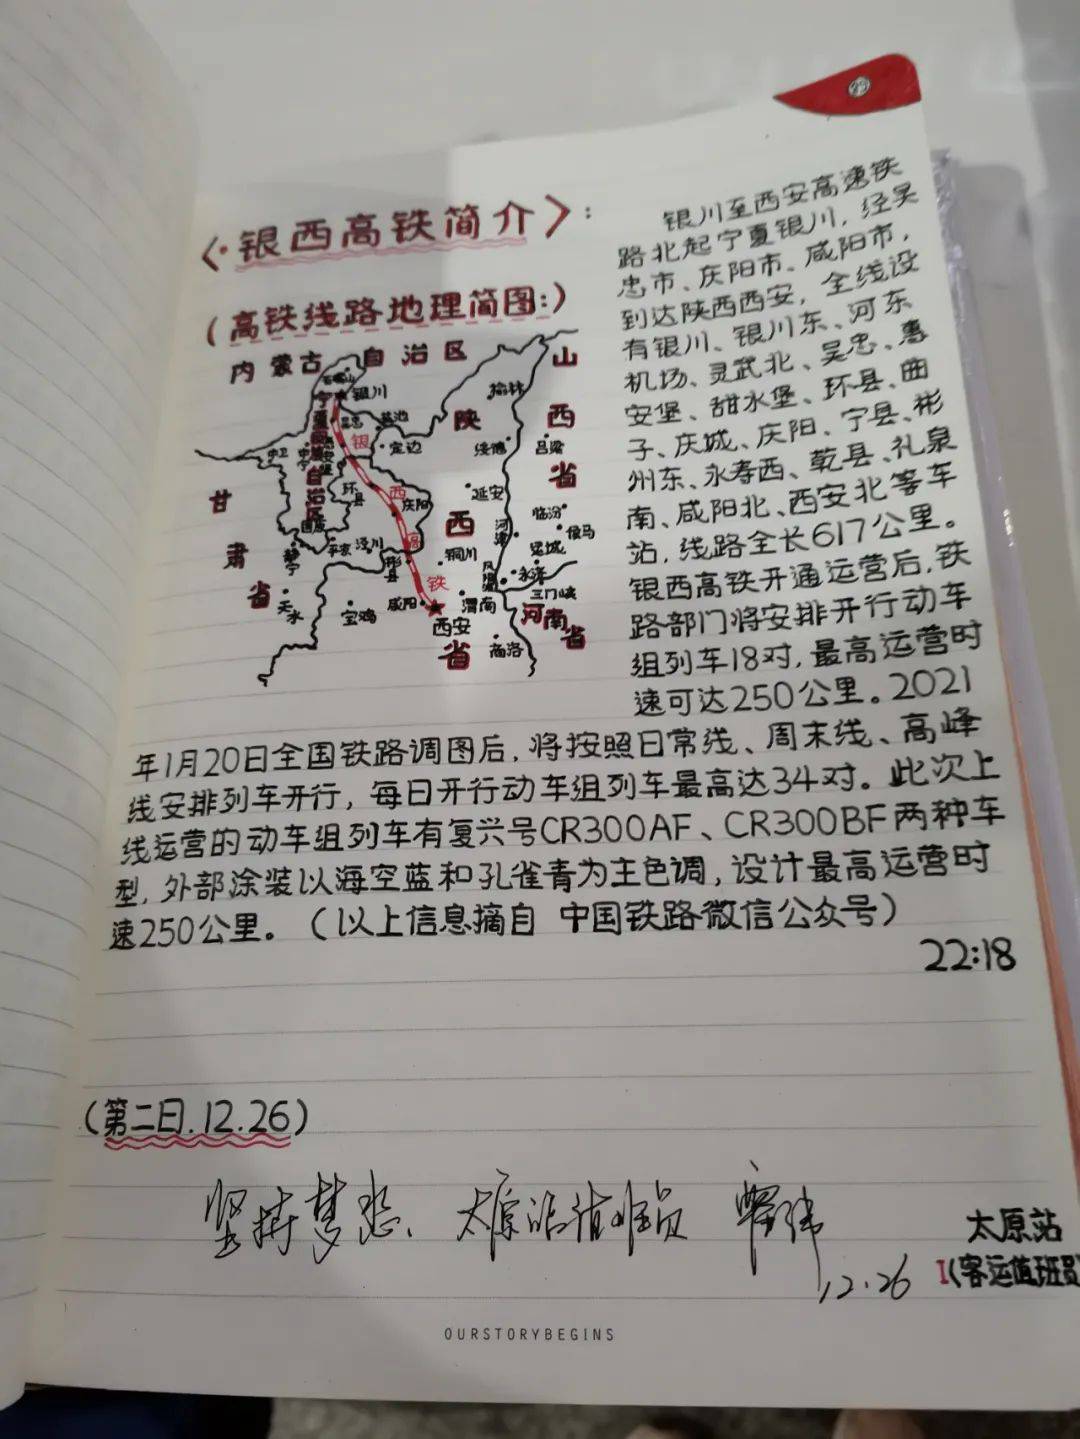 〈·银西高铁简介〉：
（高铁线路地理简图：）
内蒙古 自治区
山西省
陕西省
甘肃省
宁夏回族自治区
河南省
银西高铁
石嘴山
银川
吴忠
盐池
定边
中卫
中宁
环县
庆阳
固原
平凉
泾川
静宁
彬县
天水
宝鸡
咸阳
西安
铜川
渭南
商洛
延安
绥德
榆林
吕梁
临汾
侯马
河津
运城
永济
风陵渡
三门峡
银川至西安高速铁
路北起宁夏银川，经吴
忠市、庆阳市、咸阳市，
到达陕西西安，全线设
有银川、银川东、河东
机场、灵武北、吴忠、惠
安堡、甜水堡、环县、曲
子、庆城、庆阳、宁县、彬
州东、永寿西、乾县、礼泉
南、咸阳北、西安北等车
站，线路全长617公里。
银西高铁开通运营后，铁
路部门将安排开行动车
组列车18对，最高运营时
速可达250公里。2021
年1月20日全国铁路调图后，将按照日常线、周末线、高峰
线安排列车开行，每日开行动车组列车最高达34对。此次上
线运营的动车组列车有复兴号CR300AF、CR300BF两种车
型，外部涂装以海空蓝和孔雀青为主色调，设计最高运营时
速250公里。（以上信息摘自 中国铁路微信公众号）
22:18
（第二日.12.26）
坚持梦想、太原站值班员
12.26
太原站
（客运值班员
OURSTORYBEGINS